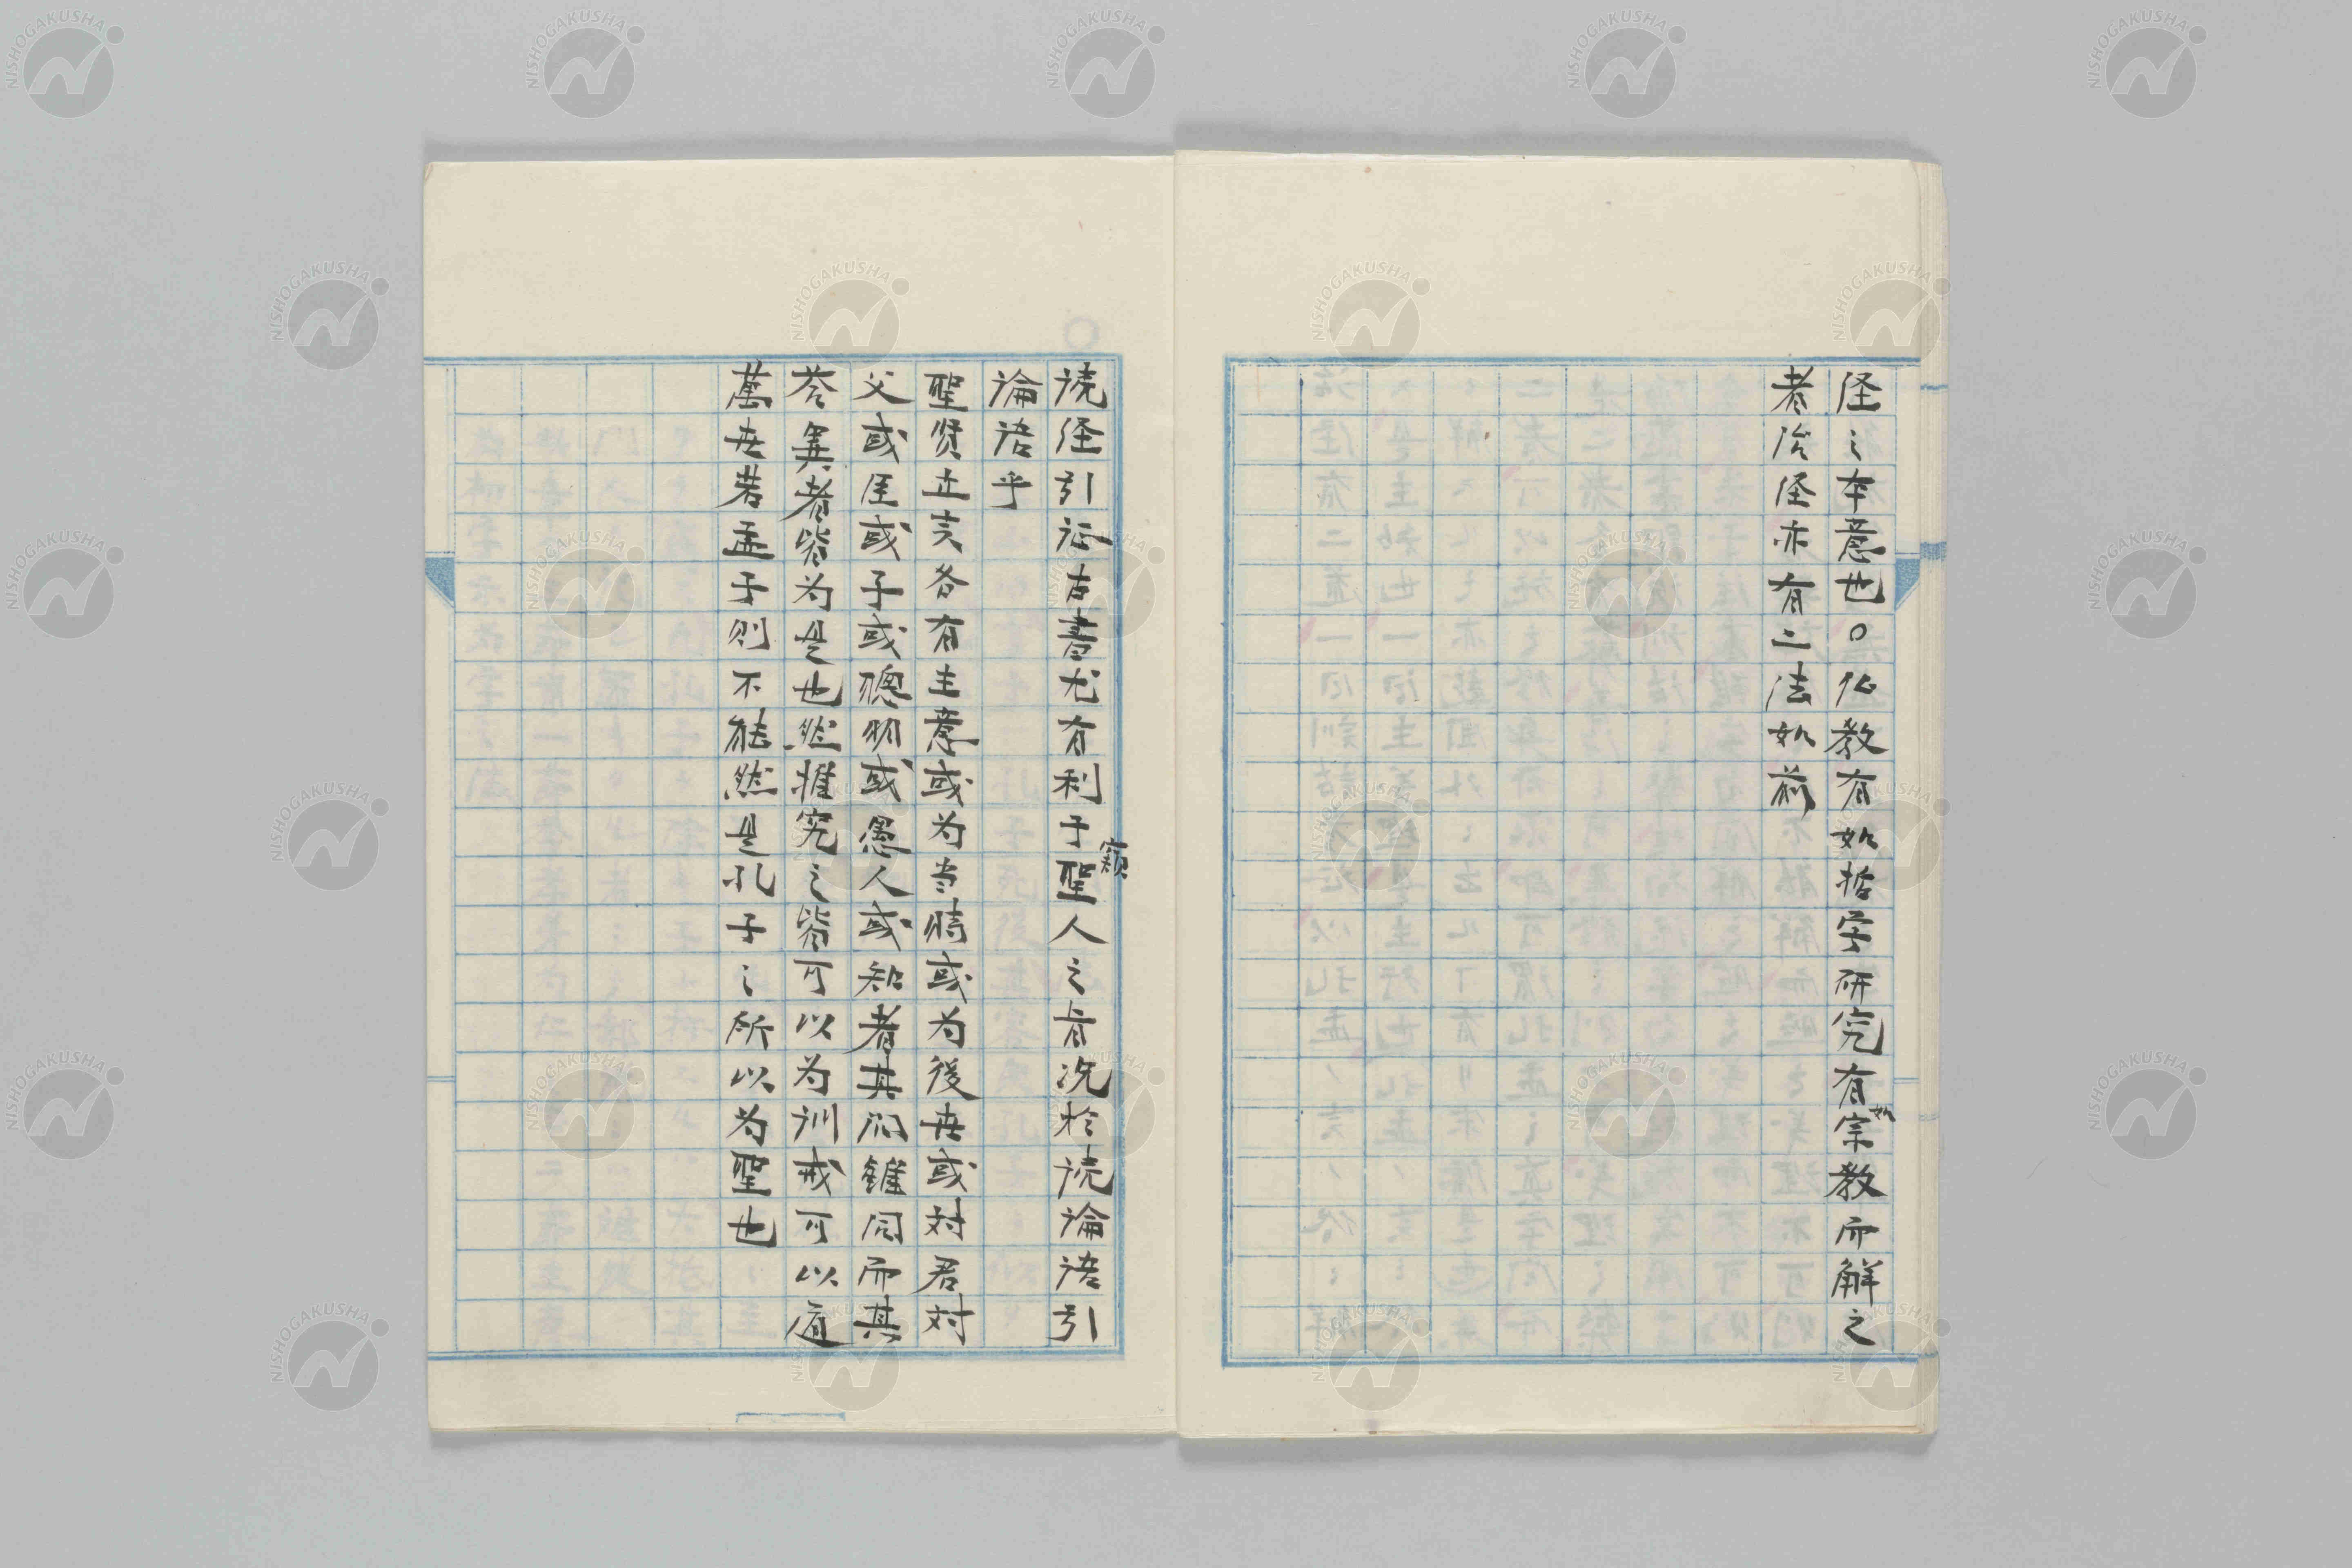 径之本意也。仏教有如哲学研究有如宗教而解之
者治径亦有二法如前
読径引証古書尤有利于窺聖人之旨况於読論語引
論語乎
聖賢立言各有主意或為当時或為後世或対君対
父或臣或子或聰明或愚人或知者其問雖同而其
答異者皆為是也然推究之皆可以為訓戒可以道
萬世若孟子則不能然是孔子之所以為聖也
NISHOGAKUSHA